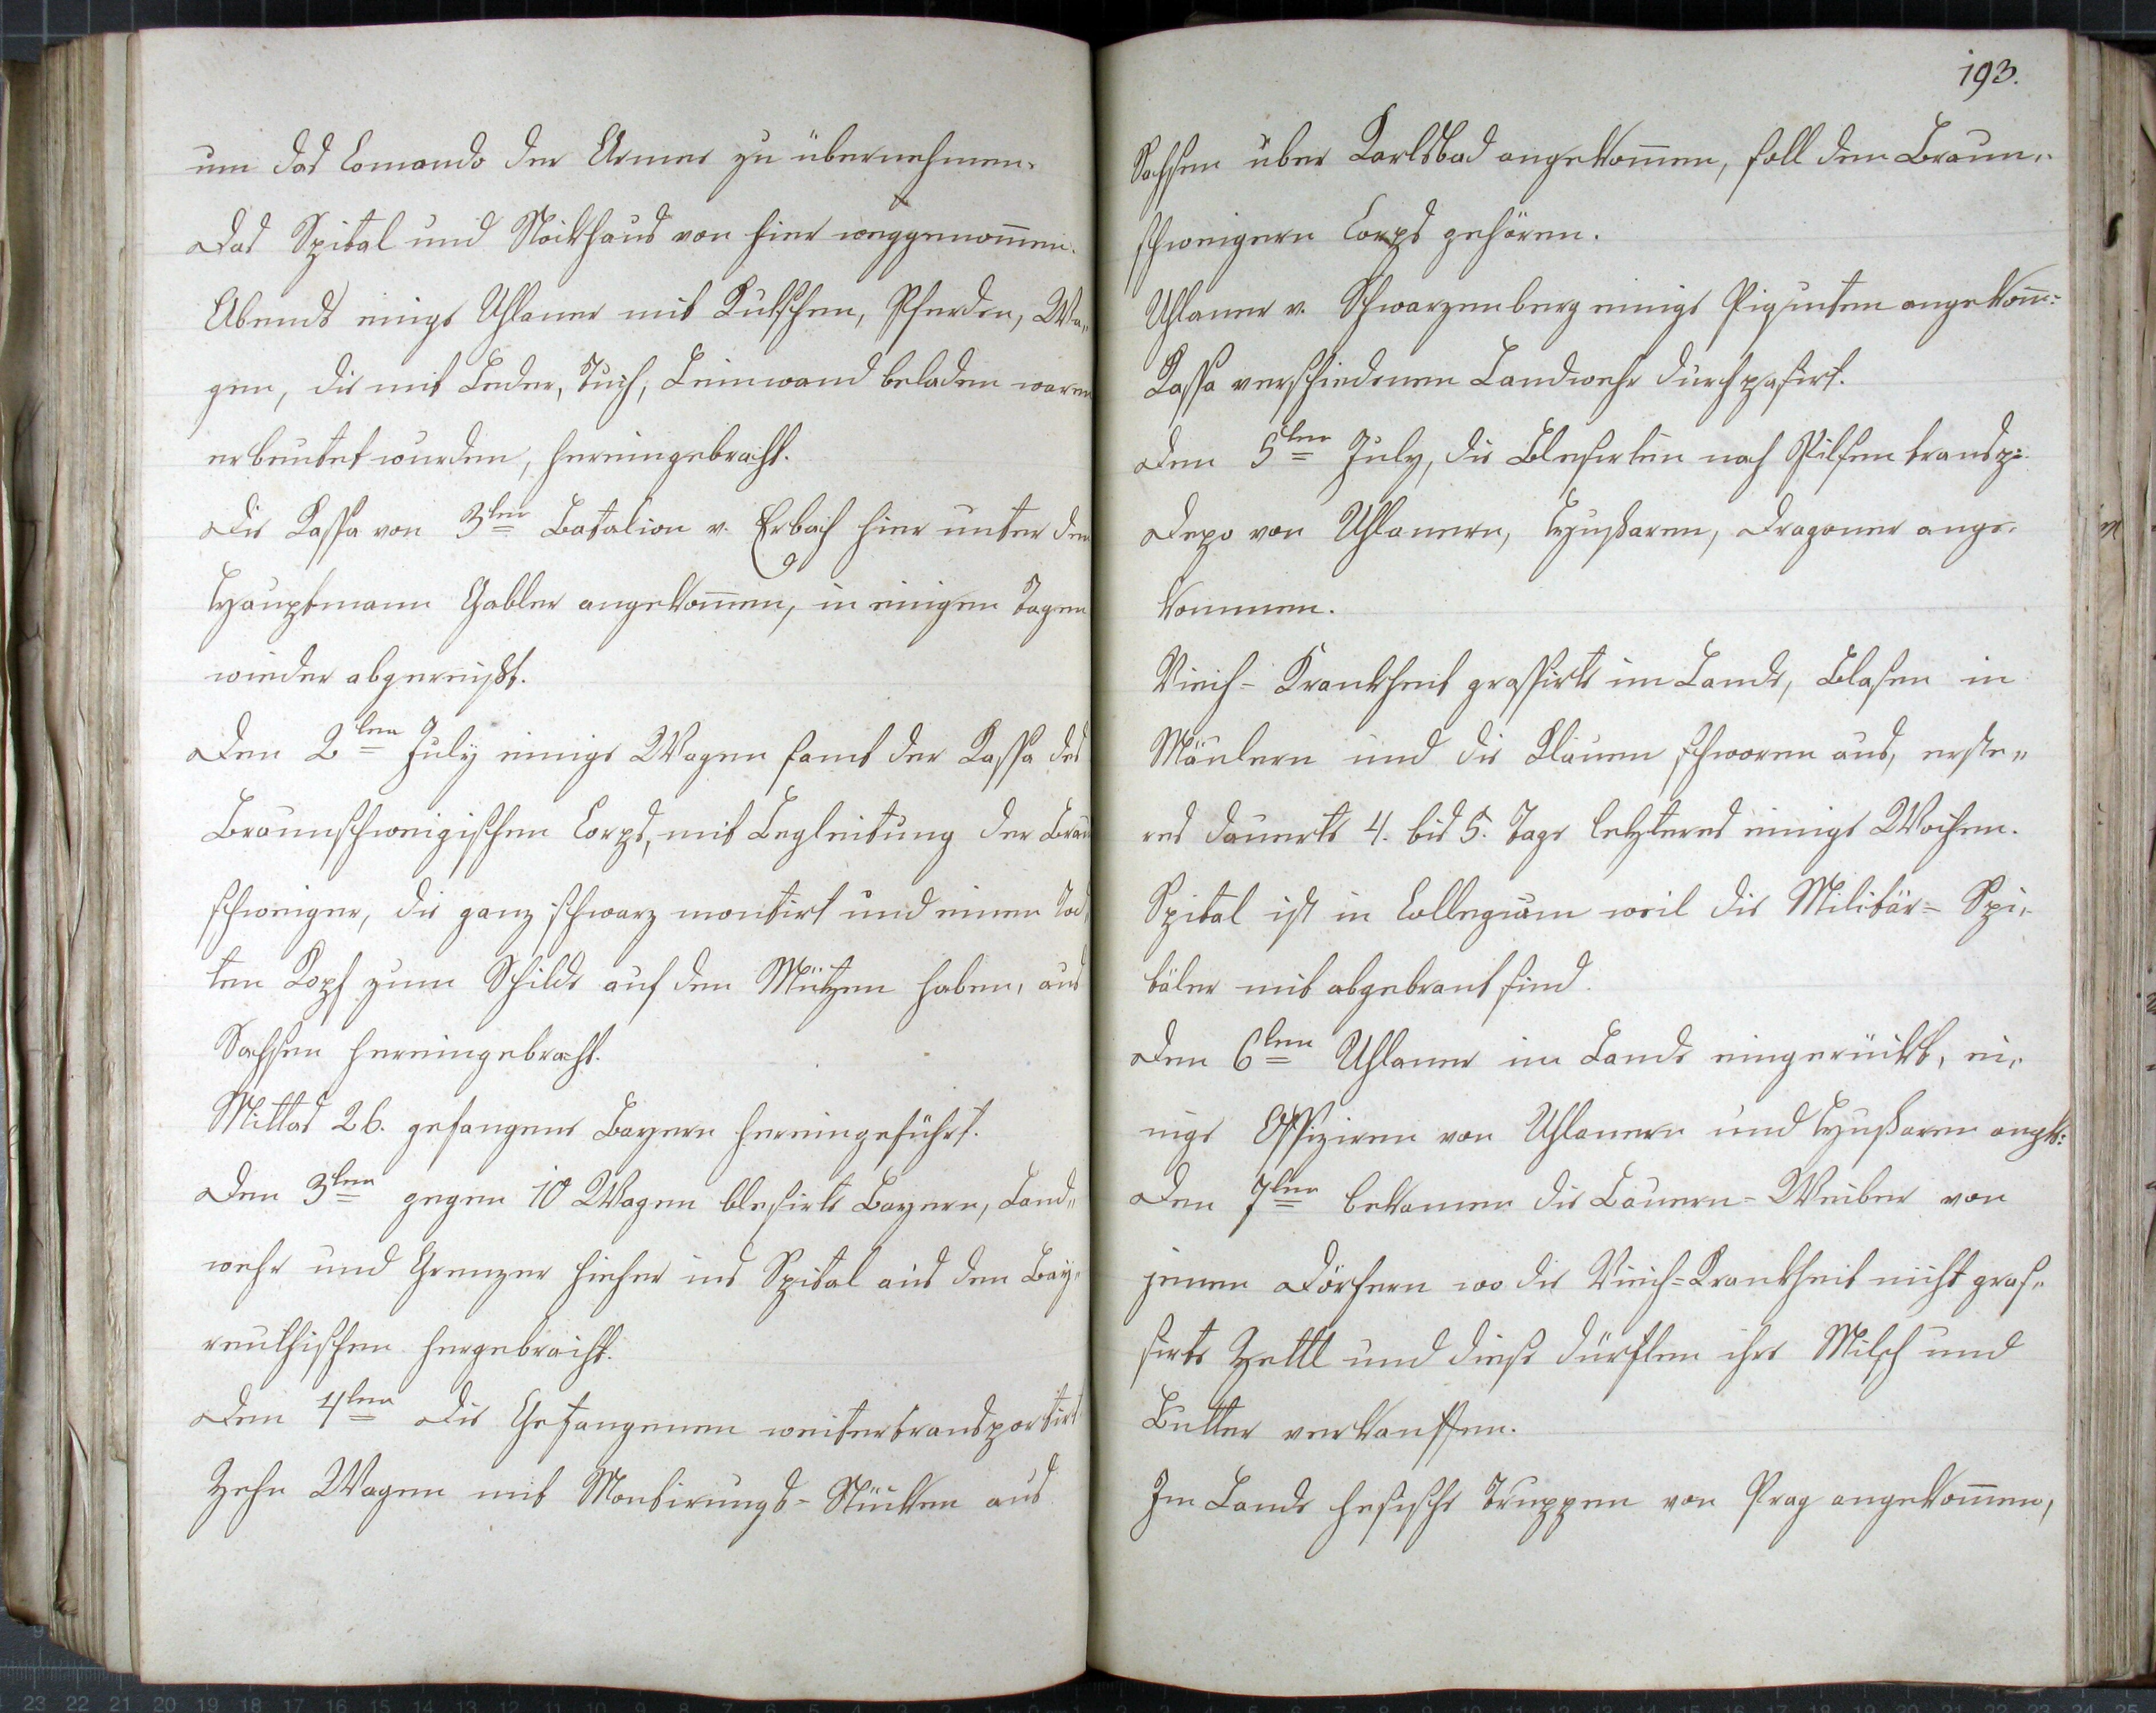 um das Comando der Armee zu übernehmen.
Das Spital und Stockhaus von hier weggenom̄en.
Abends einige Uhlaner mit Kutschen, Pferden, Wa„
gen, die mit Leder, Tuch, Leinwand beladen waren
erbeutet wurden, hereingebracht.
Die Kassa von 3ten Batalion v. Erbach hier unter den
Hauptmann Gabler angekom̄en, in einigen Tagen
wieder abgereißt.
Den 2ten July einige Wagen samt der Kassa des
Braunschweigischen Corps, mit Begleitung der Braun
schweiger, die ganz schwarz montirt und einen Tod„
ten Kopf zum Schilde auf den Mützen haben, aus
Sachsen hereingebracht.
Mittas 26. gefangene Bayern hereingeführt.
Den 3ten gegen 10 Wagen blesirte Bayern, Land„
wehr und Grenzer hieher ins Spital aus den Bay„
reuthischen hergebracht.
Den 4ten die Gefangenen weitertransportirt
Zehn Wagen mit Montirungs-Stücken aus
193.
Sachsen über Karlsbad angekom̄en, soll dem Braun„
schweigern Corps gehören.
Uhlaner v. Schwarzenberg einige Piqueten angekom̄:
Kassa verschiedenen Landwehr durchpasirt.
Den 5ten July, die Blesirten nach Pilsen transp:
Depo von Uhlanern, Hußaren, Dragoner ange„
kommen.
Viech-Krankheit grassirte im Lande, Blasen in
Mäulern und die Klauen schworen aus, erste„
res dauerte 4. bis 5. Tage letzteres einige Wochen.
Spital ist in Collegium weil die Militär-Spi„
täler mit abgebrant sind.
Den 6ten Uhlaner im Lande eingerückt, ei„
nige Offiziren von Uhlanern und Hußaren angk:
Den 7ten bekamen die Bauern-Weiber von
jenen Dörfern wo die Viech-Krankheit nicht gras„
sirte Zettl und diese dürften ihre Milch und
Butter verkauffen.
Im Lande hesische Truppen von Prag angekom̄en,